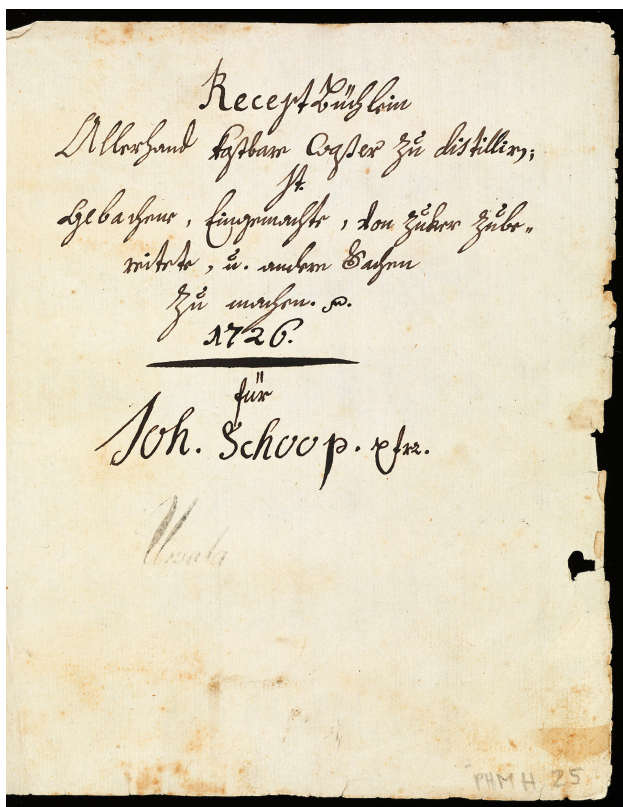 Recept Büchlein
Allerhand kostbare Waßer zu distillirn;
It.
Gebachens, Eingemachte, von Zuker Zube-
reitete, u. andere Sachen
Zu machen.
1726.
für
Joh. Schoop. pfrr.
Ursula
PHM H 25